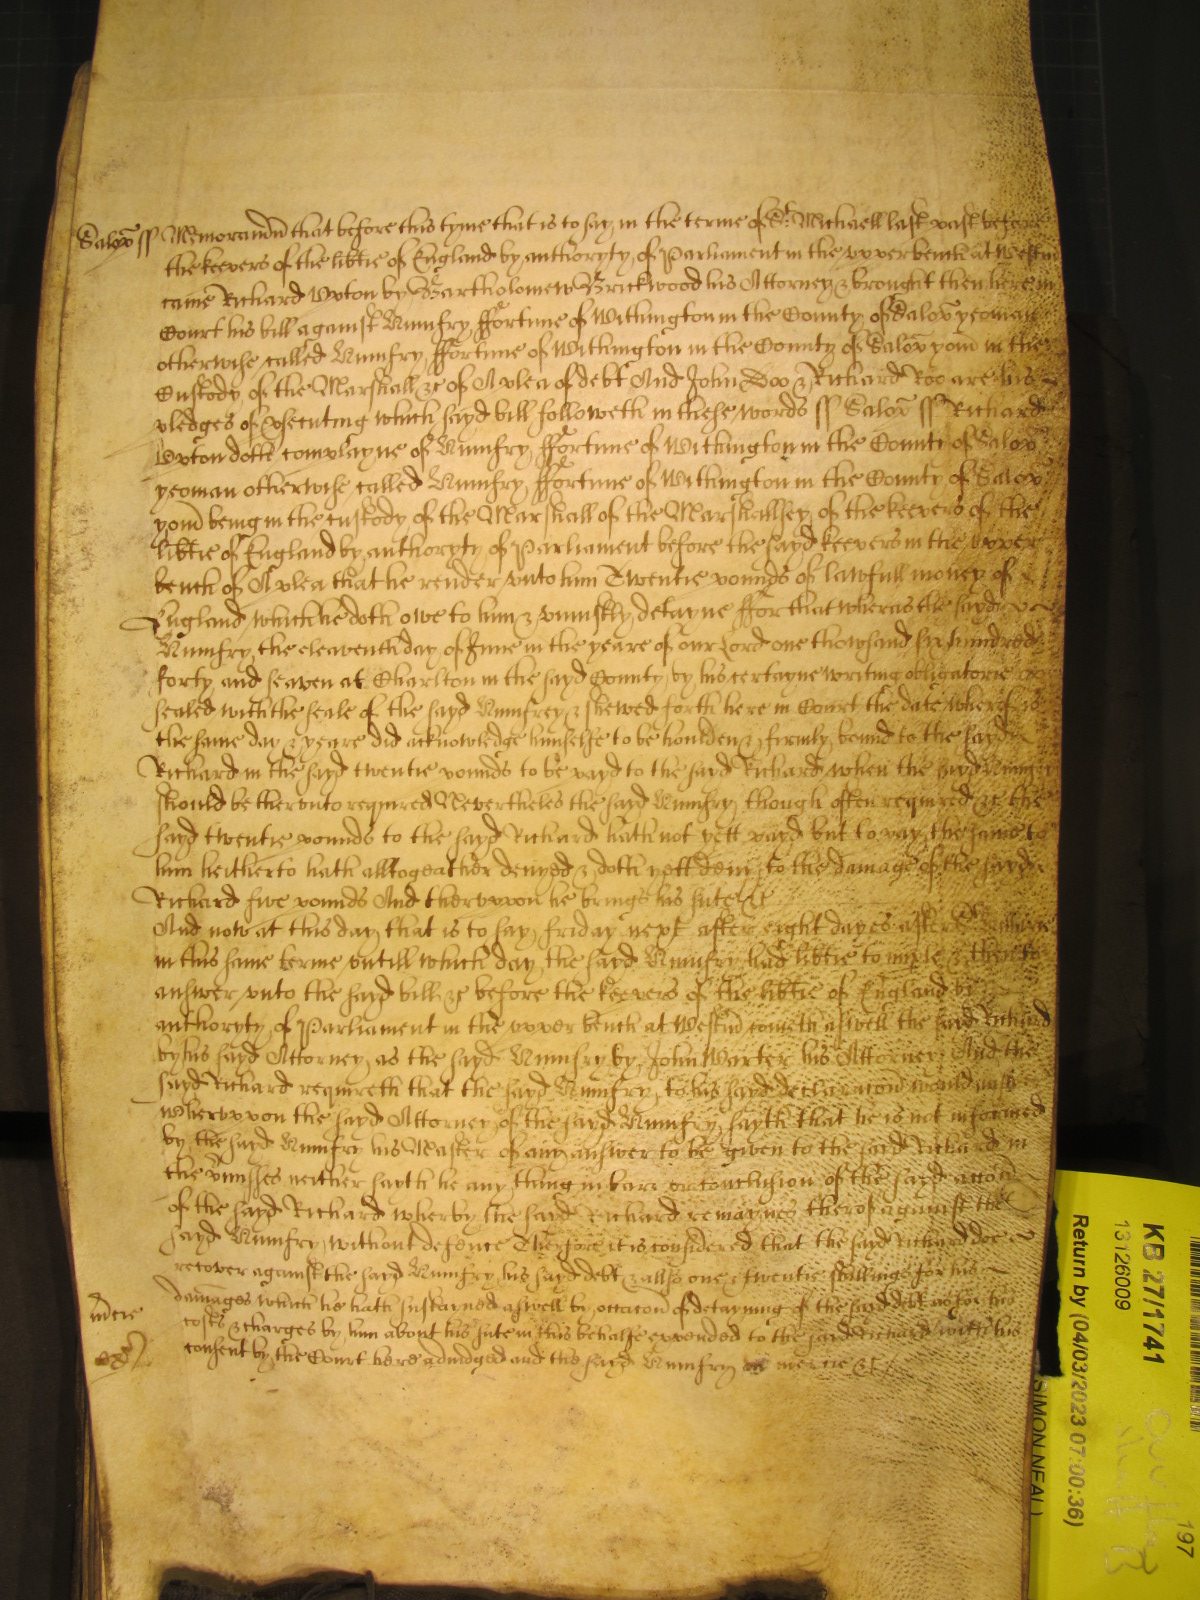 Salop ss Memorandū that before this tyme that is to say in the terme of St. Michaell last past before
the keepers of the libtie of England by authoryty of Parliament in the vpper bench at Westm
came Richard Vpton by Bartholomew Brickwood his Attorney & brought then here in
Court his bill against Humfry ffortune of Withington in the County of Salop yeoman
otherwise called Humfry ffortune of Withington in the County of Salop yom̄ in the
Custody of the Marshall &c of A plea of debt And John Doo & Richard Roo are his
pledges of psecuting which sayd bill followeth in these words ss Salop ss Richard
Vpton doth complayne of Humfry ffortune of Withington in the County of Salop
yeoman otherwise called Humfry ffortune of Withington in the County of Salop
yom̄ being in the custody of the Marshall of the Marshallsey of the keepers of the
libtie of England by authoryty of Parliament before the sayd keepers in the vpper
bench of A plea that he render vnto him Twentie pounds of lawfull money of
England which he doth owe to him & vniustly detayne ffor that wheras the sayd
Humfry the eleaventh day of June in the yeare of our Lord one thowsand six hundred
forty and seaven at Charlton in the sayd County by his certayne writing obligatorie
sealed with the seale of the sayd Humfrey & shewed forth here in Court the date wherof is
the same day & yeare did acknowledge himselfe to be houlden & firmly bound to the sayd
Richard in the sayd twentie pounds to be payd to the sayd Richard when the sayd Humfry
should be thervnto required Nevertheles the sayd Humfry though often required &c the
sayd twentie pounds to the sayd Richard hath not yett payd but to pay the same to
him heitherto hath alltogeather denyed & doth yett deny to the damage of the sayd
Richard five pounds And thervpon he brings his sute &c
And now at this day that is to say friday next after eight dayes after St. Hillarie
in this same terme vntill which day the sayd Humfry had libtie to imple & then to
answer vnto the sayd bill &c before the keepers of the libtie of England by
authoryty of Parliament in the vpper bench at Westm̄ cometh aswell the sayd Richard
by his sayd Attorney as the sayd Humfry by John Warter his Attorney And the
sayd Richard requireth that the sayd Humfry to his sayd declaracon would answ
whervpon the sayd Attorney of the sayd Humfry sayth that he is not informed
by the sayd Humfry his Master of any answer to be given to the sayd Richard in
the pmisses neither sayth he any thing in barr or conclusion of the sayd accon
of the sayd Richard wherby the sayd Richard remaynes therof against the
sayd Humfry without defence Therfore it is considered that the sayd Richard doe
recover against the sayd Humfry his sayd debt & allso one & twentie shillings for his
damages which he hath sustayned aswell by occacon of detayning of the sayd debt as for his
costs & charges by him about his sute in this behalfe expended to the sayd Richard with his
consent by the Court here adiudged and the sayd Humfry in mercie &c
mcie
KB 27/1741
13126009
Return by (04/03/2023 07:00:36)
SIMON NEAL)
197